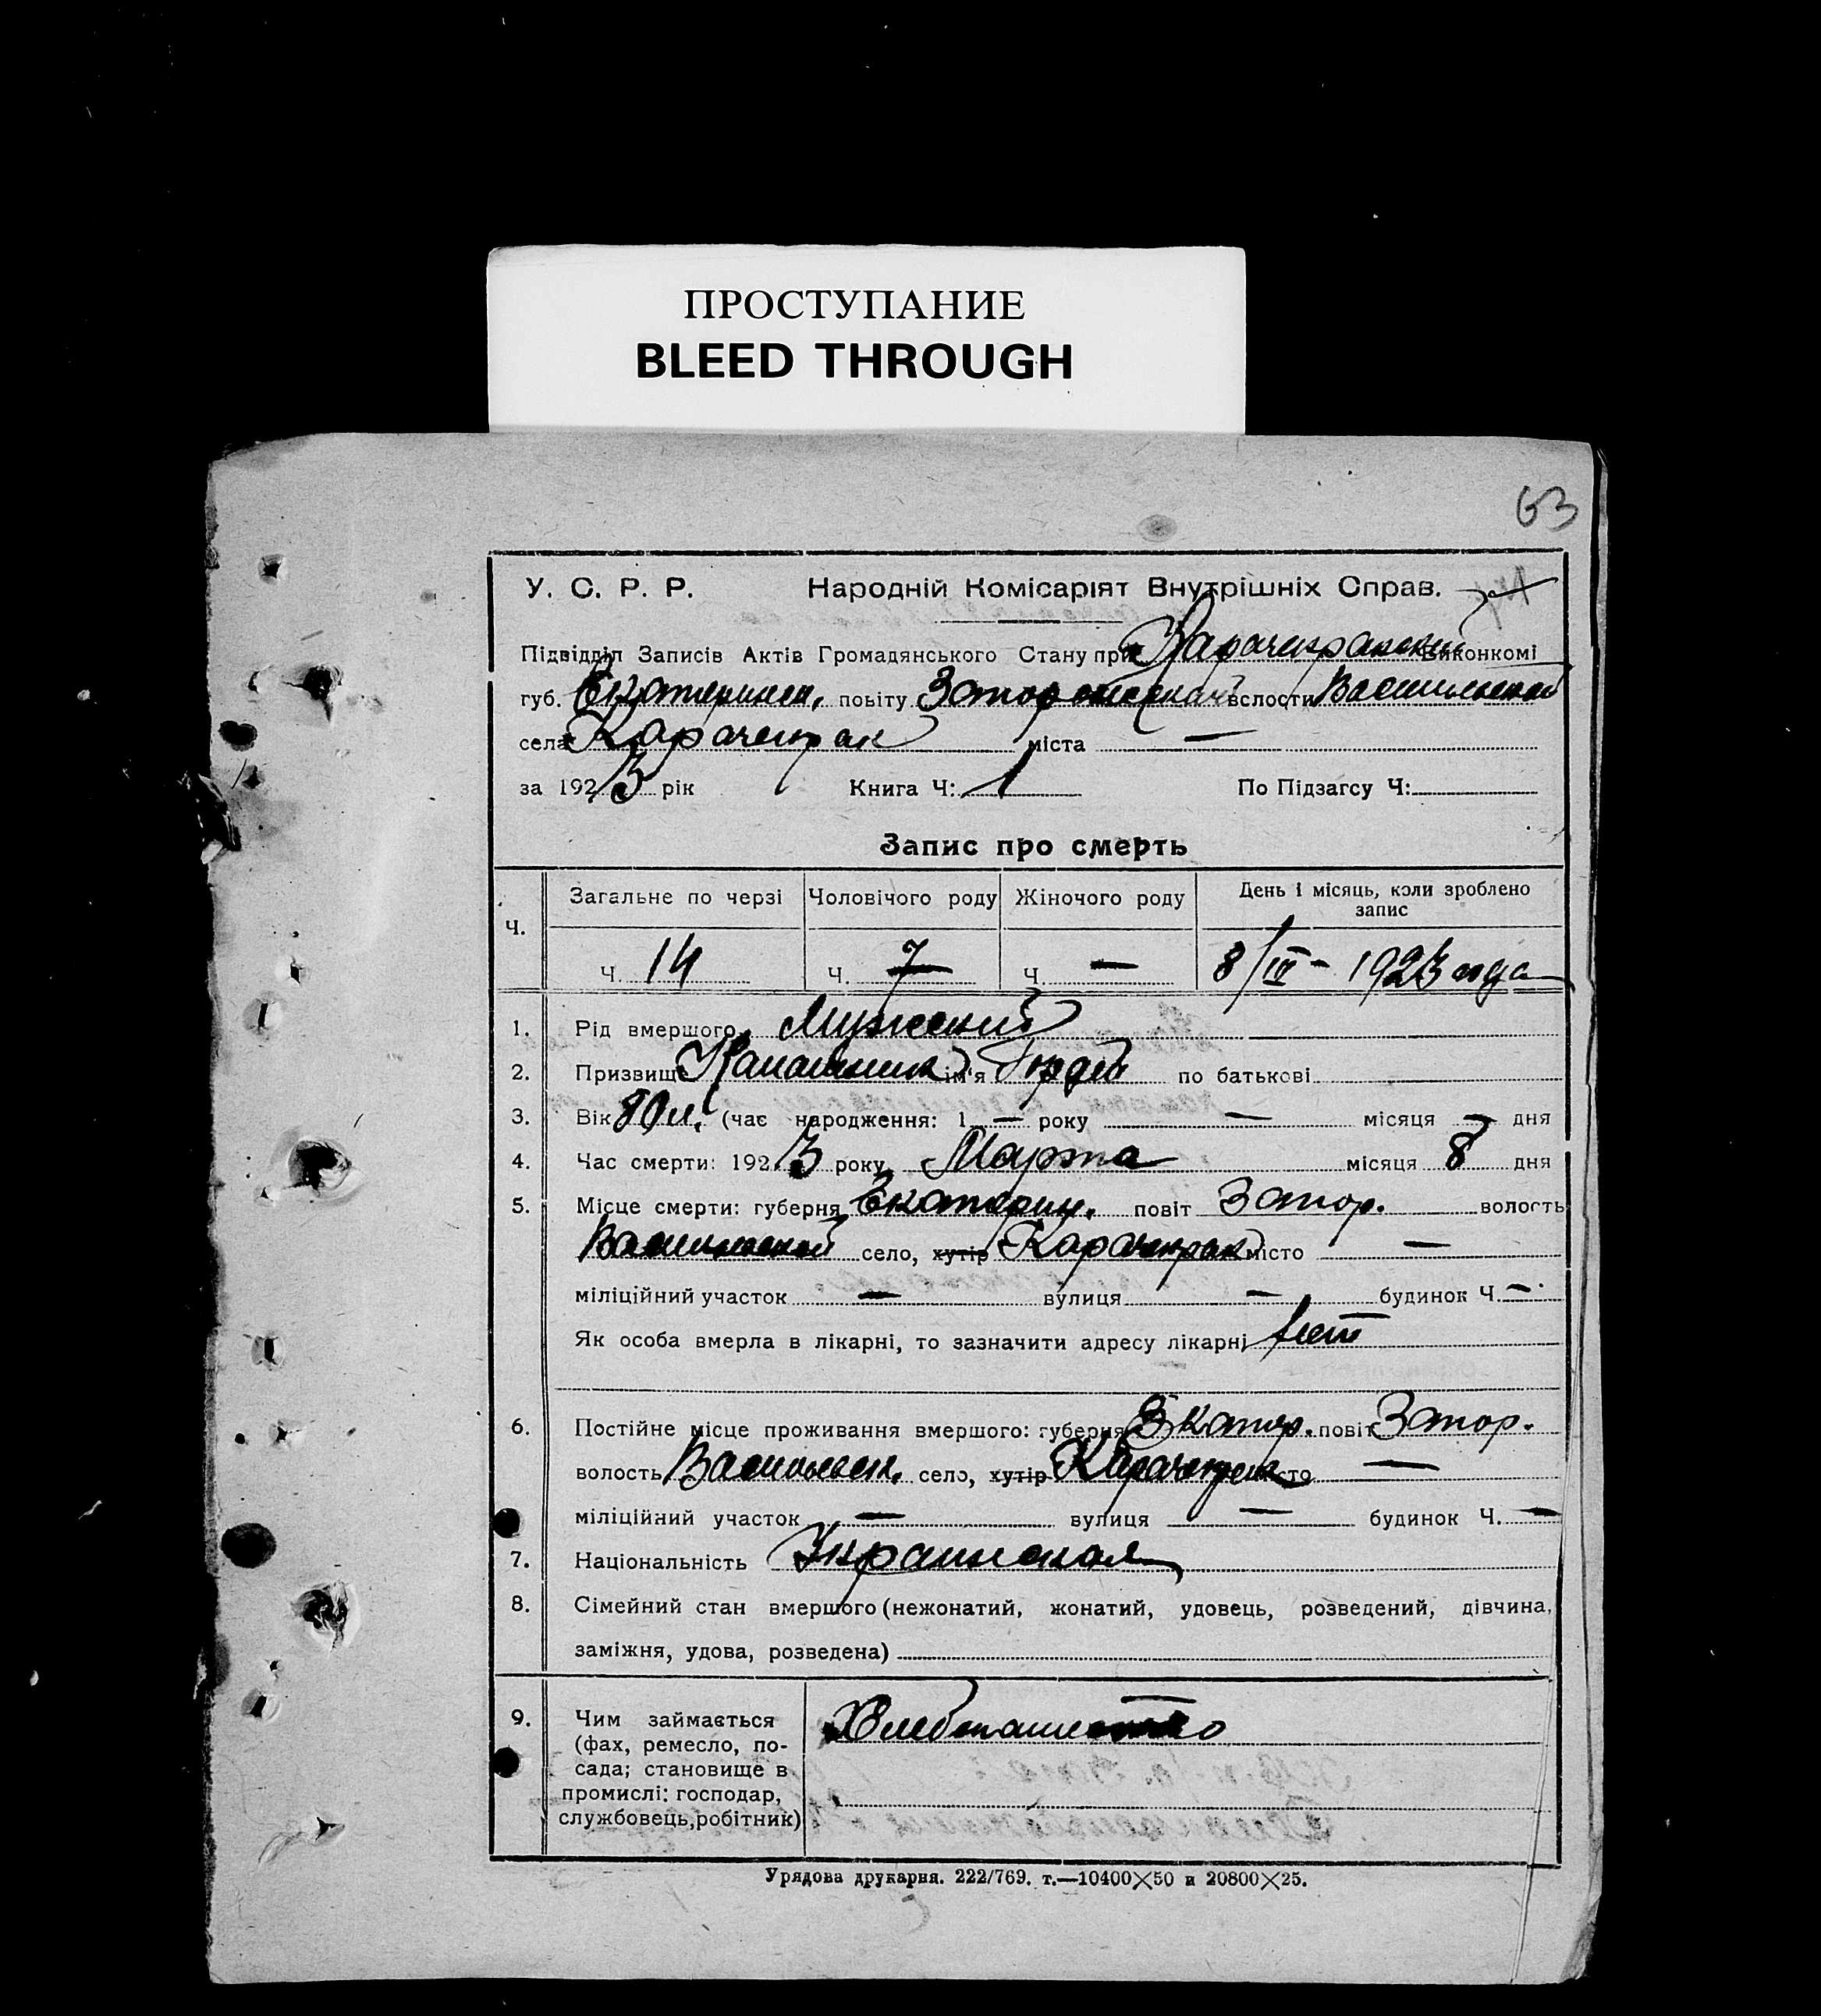 ПРОСТУПАНИЕ
BLEED THROUGH
63
У. С. Р. Р. Народній Комісаріят Внутрішніх Справ.
Підвідділ Записів Актів Громадянського Стану при Карачекракском Виконкомі
губ. Екатеринен. повіту Запорожской волости Васильевской
села Карачекрак міста —
за 1923 рік Книга Ч: 1 По Підзагсу Ч:
Запис про смерть
Ч. Загальне по черзі Чоловічого роду Жіночого роду День і місяць, коли зроблено
запис
Ч. 14 Ч. 7 Ч. — 8/III – 1923 года
1. Рід вмершого Мужский
2. Призвище ім'я Гордей по батькові
3. Вік 80 л. (час народження: 1 — року — місяця — дня
4. Час смерти: 1923 року Марта місяця 8 дня
5. Місце смерти: губерня Екатерин. повіт Запор. волость
Васильевской село, хутір Карачекрак місто —
міліційний участок — вулиця — будинок Ч. —
Як особа вмерла в лікарні, то зазначити адресу лікарні нет
6. Постійне місце проживання вмершого: губерня Екатер. повіт Запор.
волость Васильевск. село, хутір Карачекрак місто —
міліційний участок — вулиця — будинок Ч. —
7. Національність Украинская
8. Сімейний стан вмершого (нежонатий, жонатий, удовець, розведений, дівчина,
заміжня, удова, розведена)
9. Чим займається Хлебопашество
(фах, ремесло, по-
сада; становище в
промислі: господар,
службовець, робітник)
Урядова друкарня. 222/769. т.—10400×50 и 20800×25.